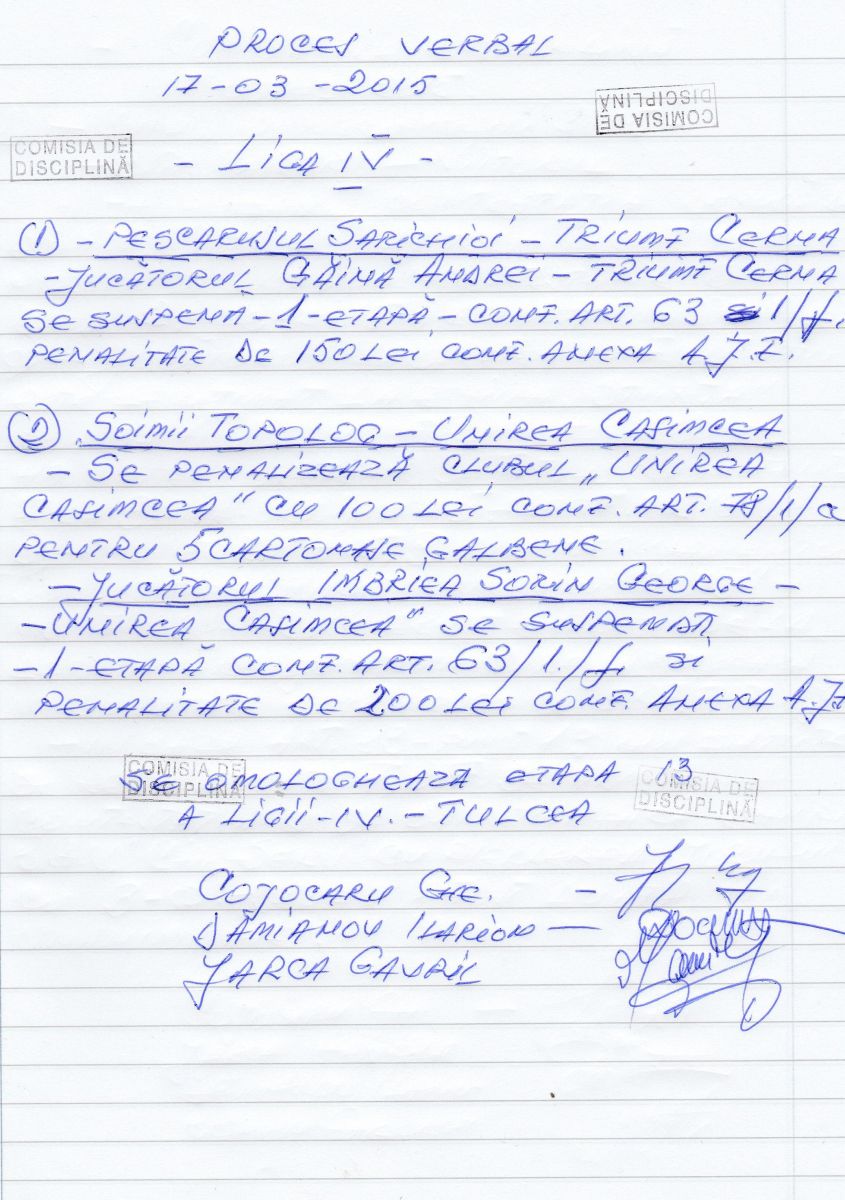 PROCES VERBAL
17-03-2015
COMISIA DE
DISCIPLINĂ
COMISIA DE
DISCIPLINĂ
- LIGA IV -
(1) - PESCARUSUL SARICHIOI - TRIUMF CERNA
- JUCĂTORUL GĂINĂ ANDREI - TRIUMF CERNA
SE SUSPENĂ - 1 - ETAPĂ - CONF. ART. 63 1/f,
PENALITATE DE 150 LEI CONF. ANEXA A.J.F.
(2) SOIMII TOPOLOG - UNIREA CASIMCEA
- SE PENALIZEAZĂ CLUBUL „UNIREA
CASIMCEA" CU 100 LEI CONF. ART. 78/1/a
PENTRU 5 CARTONAȘE GALBENE.
- JUCĂTORUL IMBRIEA SORIN GEORGE -
- UNIREA CASIMCEA" SE SUSPENDĂ
- 1 - ETAPĂ CONF. ART. 63/1./f, si
PENALITATE DE 200 LEI CONF. ANEXA A.J.F
COMISIA DE
DISCIPLINĂ
SE OMOLOGHEAZĂ ETAPA 13
COMISIA DE
DISCIPLINĂ
A LIGII-IV. - TULCEA
COJOCARU GHE. -
DĂMIANOV ILARION -
JARCA GAVRIL